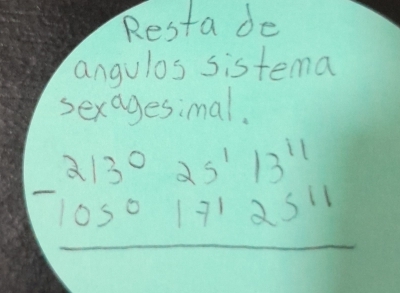 Resta de
angulos sistema
sexagesimal.
213° 25' 13''
- 105° 17' 25''